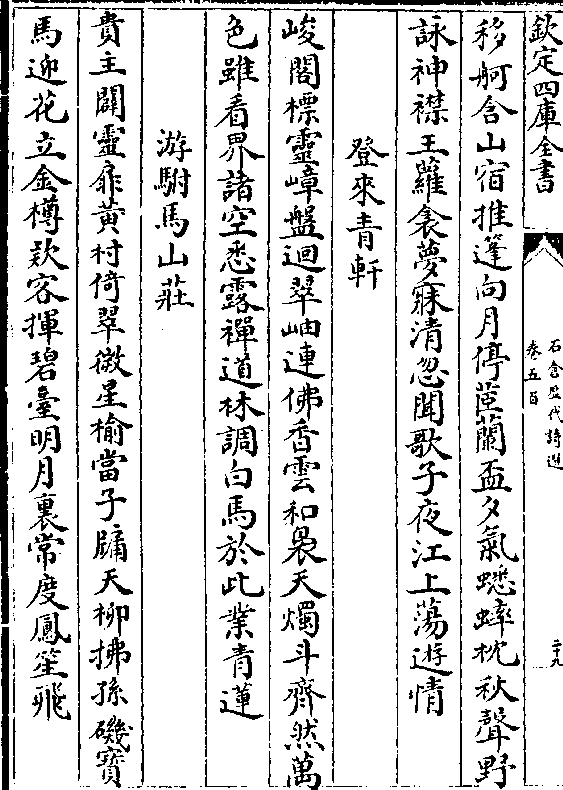 欽定四庫全書
石倉歷代詩選
卷五百
二十九
移舸含山宿推篷向月停蓝蘭盃夕氣蟋蟀枕秋聲野
詠神襟王蘿衾夢寐清忽聞歌子夜江上蕩遊情
登來青軒
峻閣標靈嶂盤迴翠岫連佛香雲和裊天燭斗齊然萬
色雖看界諸空悉露禪道林調白馬於此業青蓮
游駙馬山莊
貴主闢靈扉黃村倚翠微星榆當子牗天柳拂孫磯寳
馬迎花立金樽欵客揮碧臺明月裏常度鳳笙飛